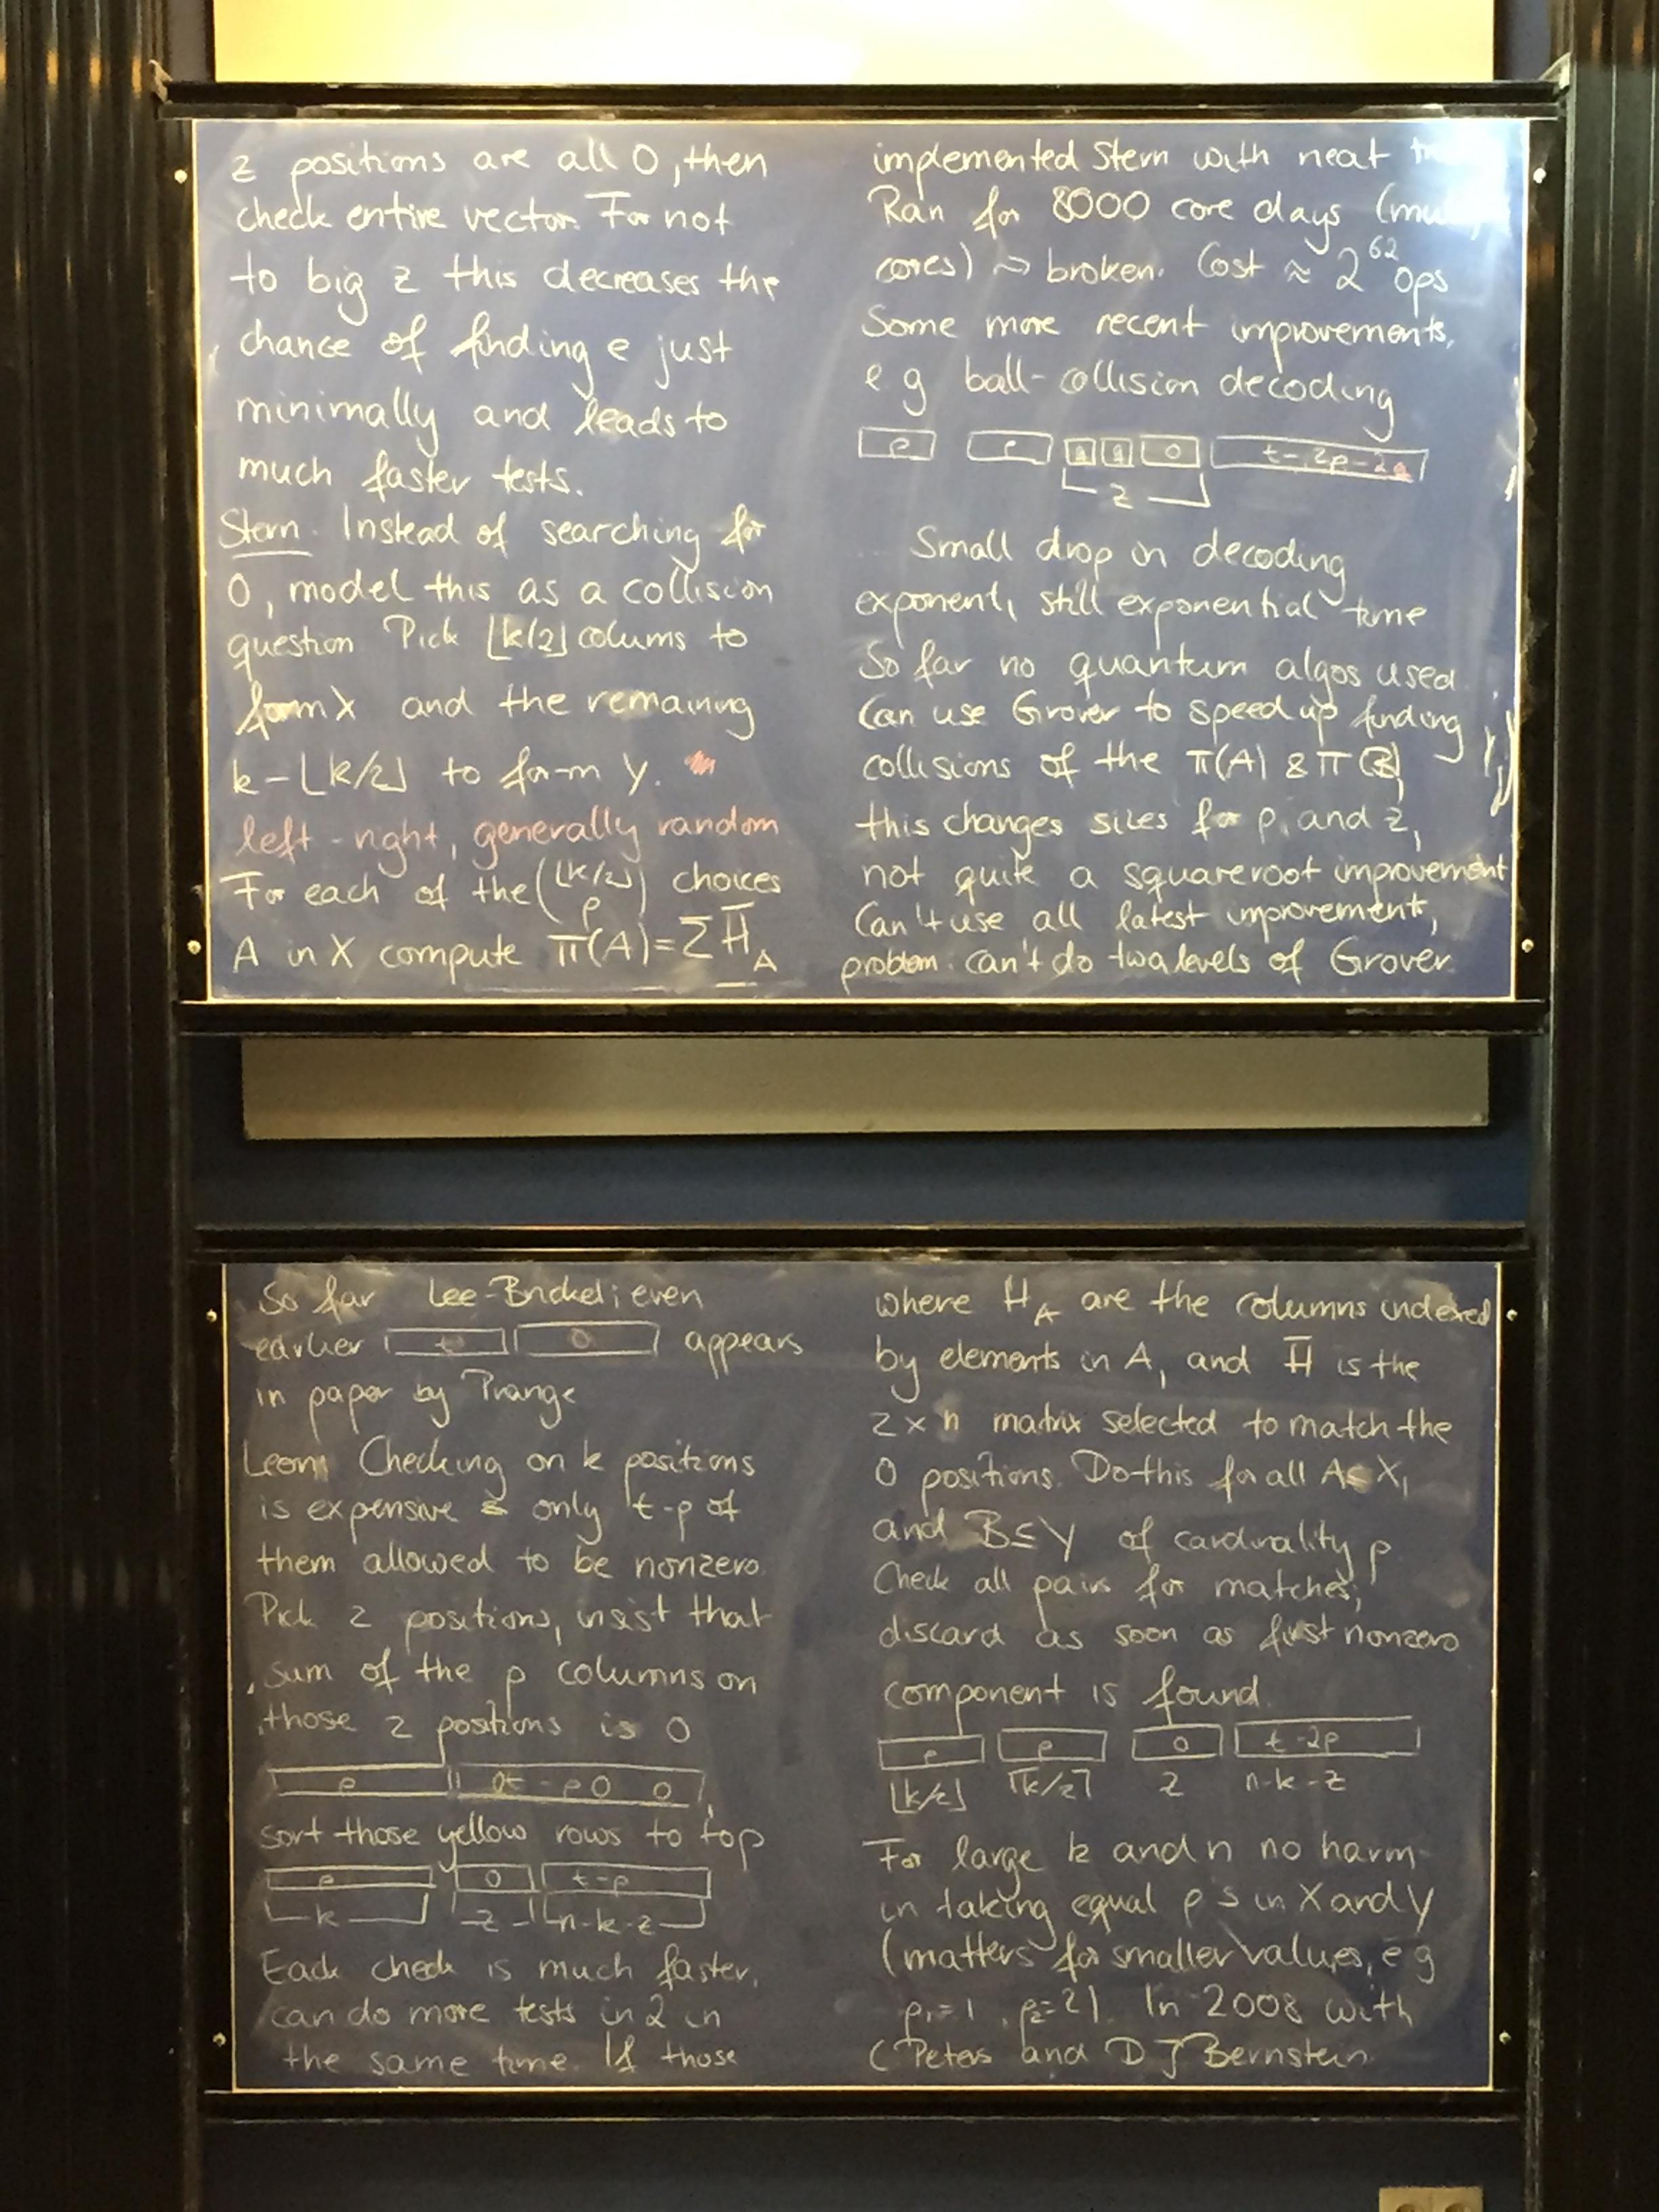 z positions are all 0, then
check entire vector. For not
to big z this decreases the
chance of finding e just
minimally and leads to
much faster tests.
Stern. Instead of searching for
0, model this as a collision
question Pick ⌊k/2⌋ colums to
form X and the remaining
k-⌊k/2⌋ to form Y.
left-right, generally random
For each of the (⌊k/2⌋ p) choices
A in X compute π(A)=Σ H̄_A
implemented Stern with neat
Ran for 8000 core days
cores) ~> broken. Cost ≈ 2^62 ops
Some more recent improvements,
e.g ball-collision decoding
p p q q 0 t-2p-2q
z
Small drop in decoding
exponent, still exponential time
So far no quantum algos used.
Can use Grover to speed up finding
collisions of the π(A) & π(B)
this changes sizes for p, and z,
not quite a squareroot improvement
Can't use all latest improvement,
problem: can't do two levels of Grover
So far Lee-Brickel; even
earlier t 0 appears
in paper by Prange
Leon: Checking on k positions
is expensive & only t-p of
them allowed to be nonzero.
Pick z positions, insist that
sum of the p columns on
those z positions is 0
p 0t-p0 0
sort those yellow rows to top
p 0 t-p
k z n-k-z
Each check is much faster,
can do more tests in 2 in
the same time. If those
where H_A are the columns indexed
by elements in A, and H̄ is the
z×n matrix selected to match the
0 positions. Do this for all A⊆X,
and B⊆Y of cardinality p.
Check all pairs for matches;
discard as soon as first nonzero
component is found.
p p 0 t-2p
⌊k/2⌋ ⌈k/2⌉ z n-k-z
For large k and n no harm
in taking equal p's in X and Y
(matters for smaller values, e.g
p₁=1, p₂=2). In 2008 with
C Peters and D J Bernstein